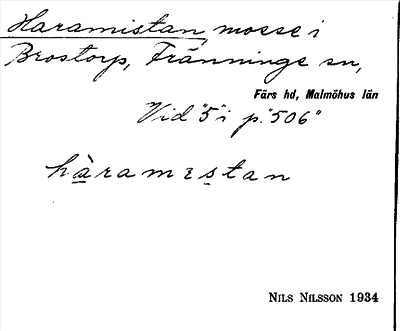 Haramistan, mosse i
Brostorp, Tränninge sn,
Färs hd, Malmöhus län
Vid "5" i p. "506"
hàramɛstan
NILS NILSSON 1934